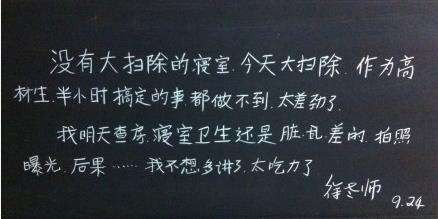 没有大扫除的寝室.今天大扫除.作为高
材生.半小时搞定的事.都做不到.太差劲了.
我明天查房.寝室卫生还是脏.乱差的.拍照
曝光.后果……我不想多讲了.太吃力了
徐老师
9.24